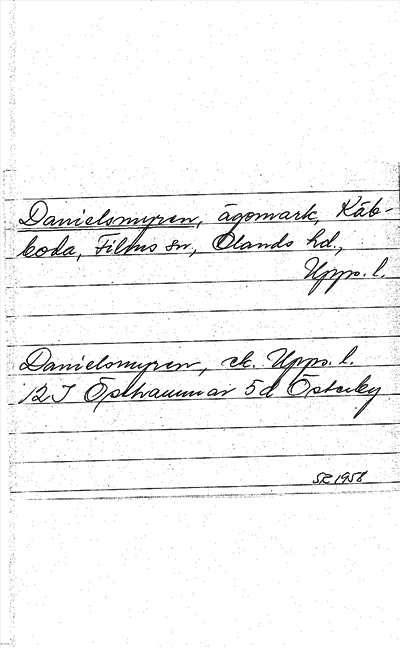 Danielsmyren, ägomark, Käb-
boda, Films sn, Olands hd,
Upps. l.
Danielsmyren, ek. Upps. l.
12 I Östhammar 5 d Österby
SR 1958